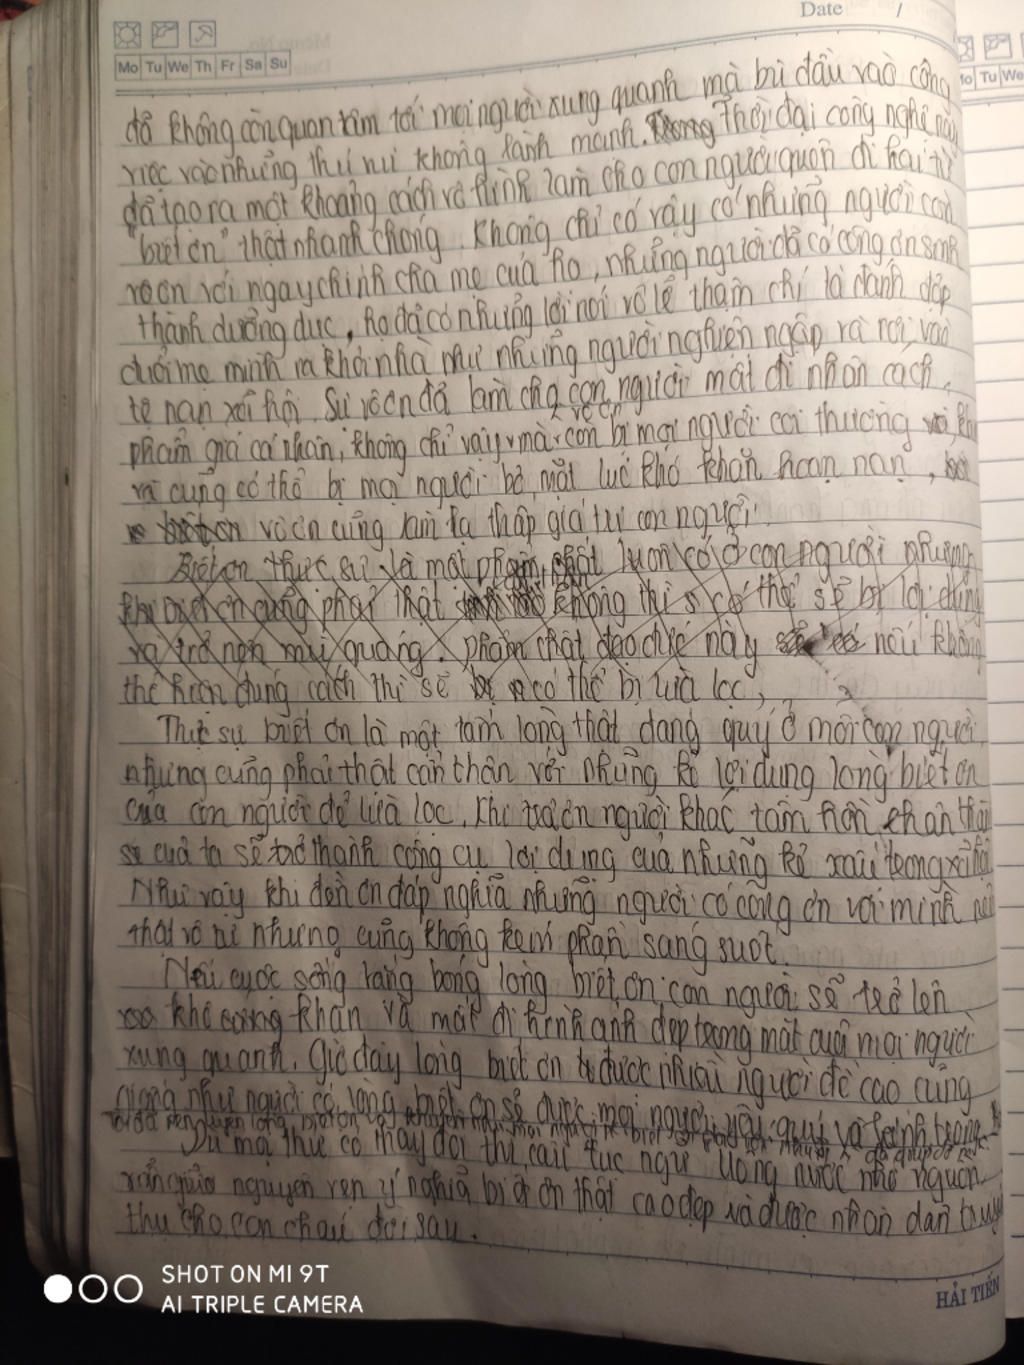 Date /
Mo Tu We Th Fr Sa Su
Mo Tu We
đã không còn quan tâm tới mọi người xung quanh mà bù đầu vào công
việc vào những thú vui không lành mạnh. Trong Thời đại công nghệ này
đã tạo ra một khoảng cách vô hình làm cho con người quên đi hai từ
"biết ơn" thật nhanh chóng. Không chỉ có vậy có những người còn
vô ơn với ngay chính cha mẹ của họ, những người đã có công ơn sinh
thành dưỡng dục, họ đã có những lời nói vô lễ thậm chí là đánh đập
đuổi mẹ mình ra khỏi nhà như những người nghiện ngập rà rơi vào
tệ nạn xã hội. Sự vô ơn đã làm cho con người mất đi nhân cách,
vô ơn
phẩm giá cá nhân, không chỉ vậy mà còn bị mọi người coi thường
và cũng có thể bị mọi người bỏ mặt lúc khó khăn hoạn nạn,
vô ơn cũng làm hạ thấp giá trị con người.
Biết ơn thực sự là một phẩm chất luôn có ở con người nhưng
khi biết ơn cũng phải thật không thì có thể sẽ bị lợi dụng
và trở nên mù quáng. phẩm chất đạo đức này nếu không
thể hiện đúng cách thì sẽ có thể bị lừa lọc,
Thực sự biết ơn là một tấm lòng thật đáng quý ở mỗi con người
nhưng cũng phải thật cẩn thận với những kẻ lợi dụng lòng biết ơn
của con người để lừa lọc. Khi trả ơn người khác tâm hồn chân thật
của ta sẽ trở thành công cụ lợi dụng của những kẻ xấu trong xã hội
Như vậy khi đền ơn đáp nghĩa những người có công ơn với mình nên
thật vô tư nhưng cũng không kém phần sáng suốt.
Nếu cuộc sống vắng bóng lòng biết ơn con người sẽ trở lên
khô khan và mất đi hình ảnh đẹp trong mắt của mọi người
xung quanh. Giờ đây lòng biết ơn được nhiều người đề cao cũng
giống như người có lòng biết ơn sẽ được mọi người yêu quý và kính trọng
Dù mọi thứ có thay đổi thì câu tục ngữ "Uống nước nhớ nguồn
vẫn giữ nguyên vẹn ý nghĩa biết ơn thật cao đẹp và được nhân dân truyền
thụ cho con cháu đời sau.
HẢI TIẾN
SHOT ON MI 9T
AI TRIPLE CAMERA